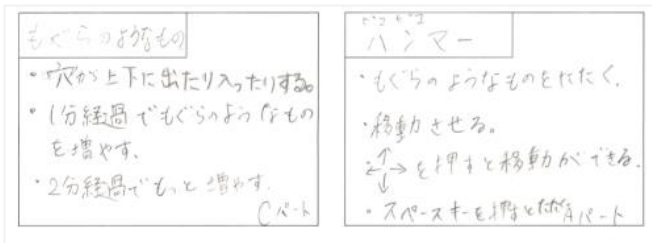 もぐらのようなもの
・穴が上下に出たり入ったりする。
・1分経過でもぐらのようなもの
を増やす、
・2分経過でもっと増やす。
Cパート
ハンマー
・もぐらのようなものをたたく。
・移動させる。
・↑←→↓を押すと移動ができる。
・スペースキーを押すと
Aパート